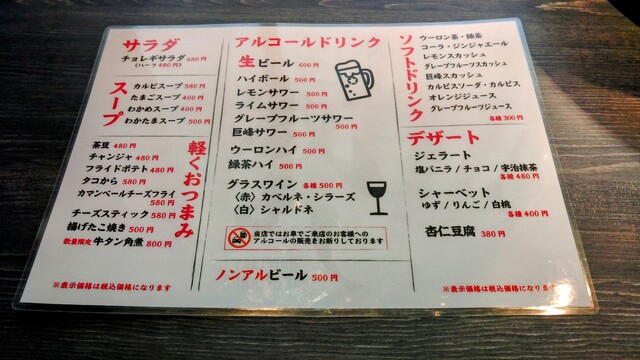 サラダ
チョレギサラダ 680円
(ハーフ 480円)
スープ
カルビスープ 580円
たまごスープ 400円
わかめスープ 400円
わかたまスープ 500円
軽くおつまみ
茶豆 480円
チャンジャ 480円
フライドポテト 480円
タコから 580円
カマンベールチーズフライ
580円
チーズスティック 580円
揚げたこ焼き 500円
数量限定 牛タン角煮 800円
※表示価格は税込価格になります
アルコールドリンク
生ビール 600円
ハイボール 500円
レモンサワー 500円
ライムサワー 500円
グレープフルーツサワー
500円
巨峰サワー 500円
ウーロンハイ 500円
緑茶ハイ 500円
グラスワイン 各種500円
〈赤〉カベルネ・シラーズ
〈白〉シャルドネ
当店ではお車でご来店のお客様への
アルコールの販売をお断りしております
ノンアルビール 500円
ソフトドリンク
ウーロン茶・緑茶
コーラ・ジンジャエール
レモンスカッシュ
グレープフルーツスカッシュ
巨峰スカッシュ
カルピスソーダ・カルピス
オレンジジュース
グレープフルーツジュース
各種300円
デザート
ジェラート
塩バニラ / チョコ / 宇治抹茶
各種480円
シャーベット
ゆず / りんご / 白桃
各種400円
杏仁豆腐 380円
※表示価格は税込価格になります